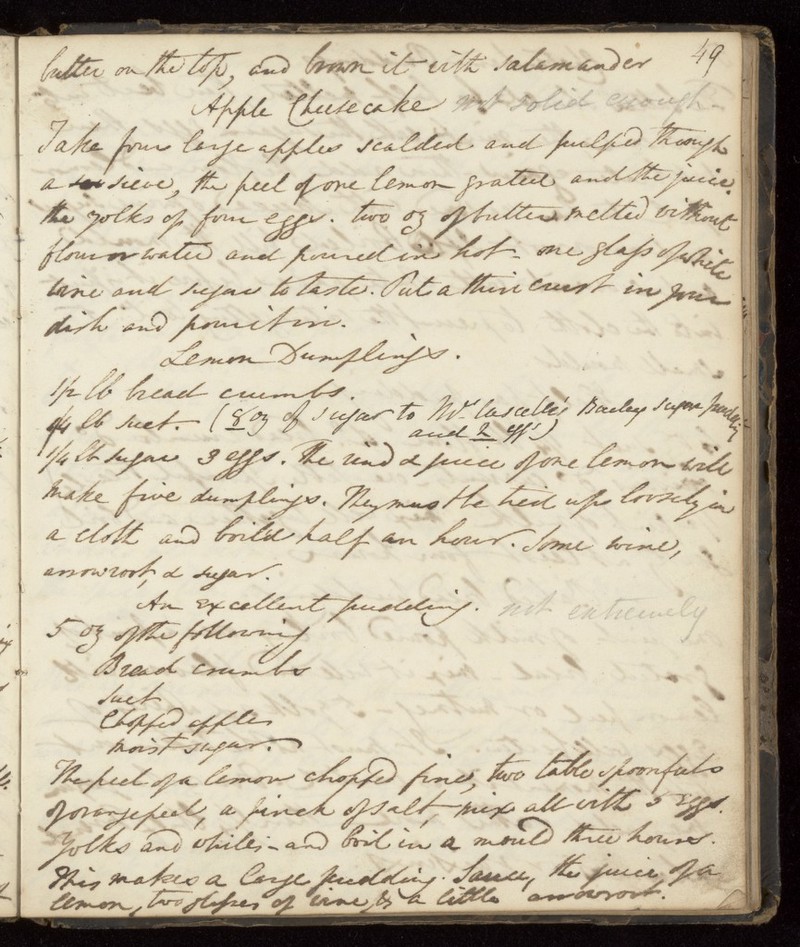 49
butter on the top, and brown it with salamander
Apple Cheesecake not solid enough
Take four large apples scalded and pulped through
a sieve, the peel of one lemon grated and the juice.
the yolks of four eggs. two oz of butter melted without
flour or water and poured in hot - one glass of white
wine and sugar to taste. Put a thin crust in your
dish and pour it in.
Lemon Dumplings.
1/2 lb bread crumbs.
1/4 lb suet. (8 oz of sugar to Mrs Lascelle's Barley sugar pudding
and 2 eggs)
1/4 lb sugar 3 eggs. The rind & juice of one lemon will
make five dumplings. They must be tied up loosely in
a cloth and boild half an hour. Some wine,
arrowroot, & sugar.
An excellent pudding. not extremely
5 oz of the following
Bread crumbs
Suet
Chopped apples
moist sugar.
The peel of a lemon chopped fine, two table spoonfuls
of orangepeel, a pinch of salt, mix all with 5 eggs.
Yolks and whites - and boil in a mould three hours.
This makes a large pudding. Sauce, the juice of a
lemon, two glasses of wine, & a little arrowroot.